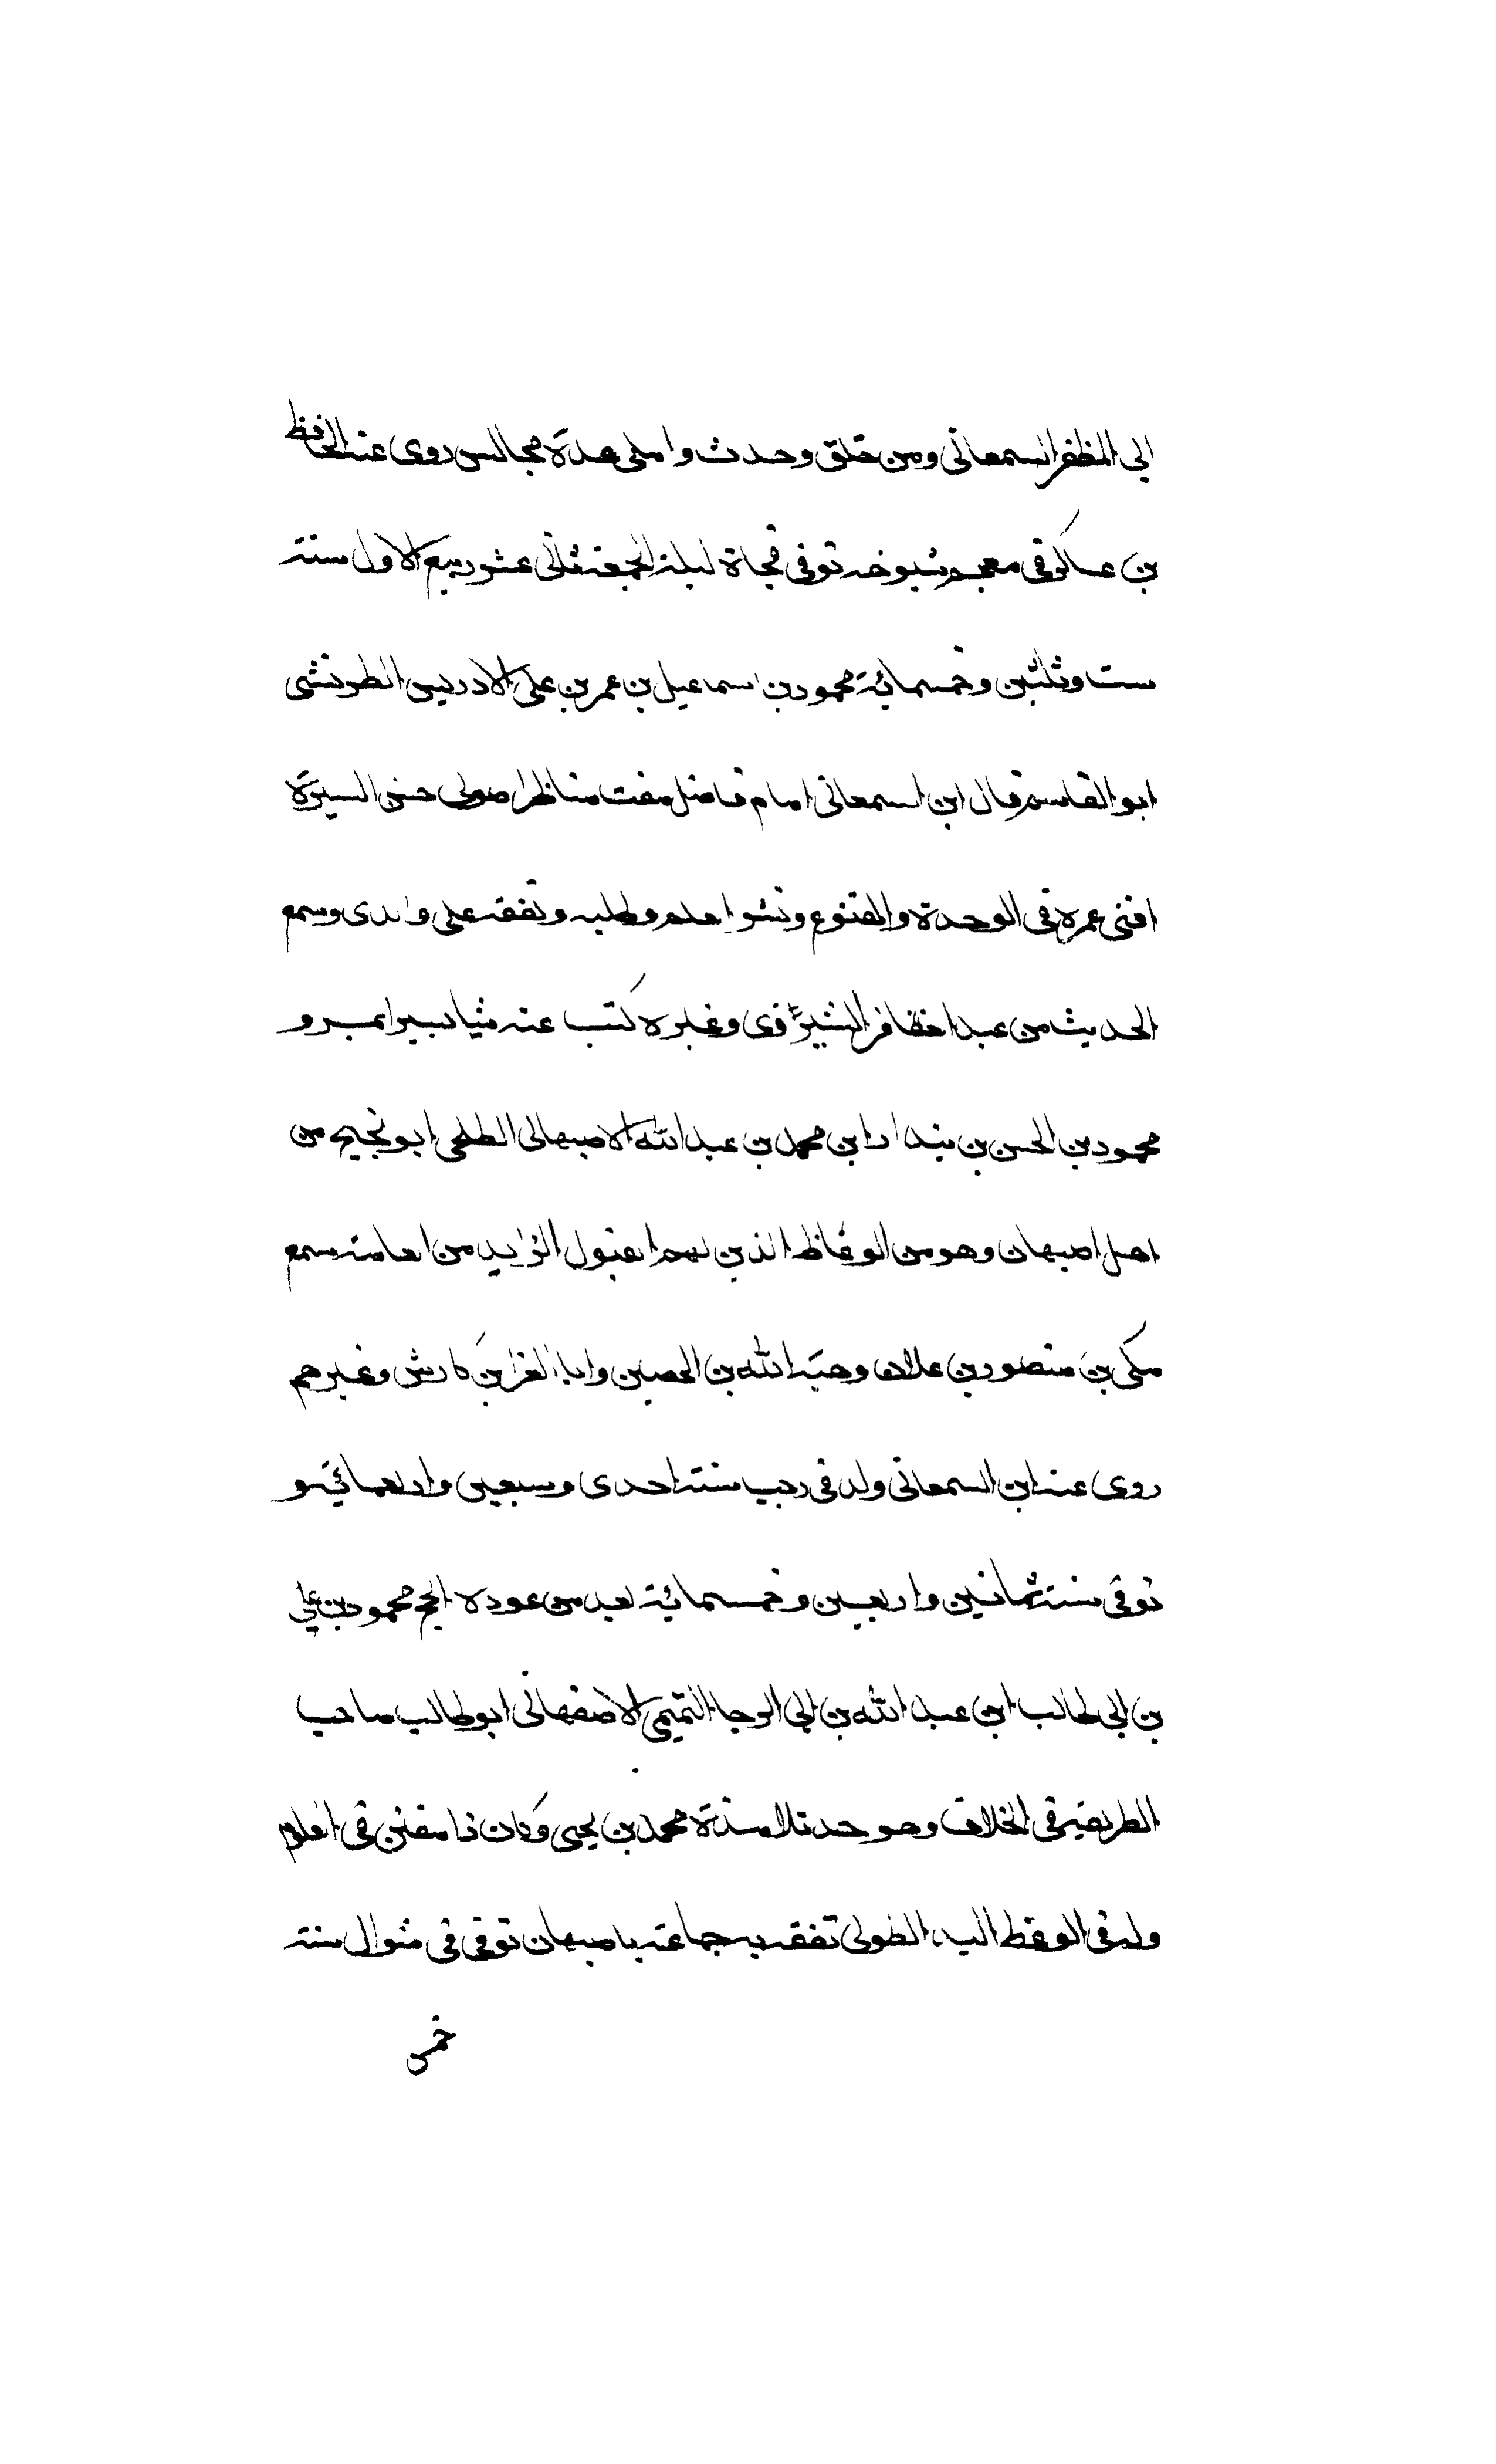 ابي المظفر السمعاني ومن خلق وحدث واملى عدة مجالس روى عنه الحافظ
بن عساكر في معجم شيوخه توفى فجاة ليلة الجمعة ثاني عشر ربيع الاول سنة
ست وثلثين وخمسمائة محمود بن اسماعيل بن عمر بن على الادريسي الطريثثي
ابو القاسم قال ابن السمعاني امام فاضل مفت مناظر اصولى حسن السيرة
افنى عمره في الوحدة والقنوع ونشر العلم وطلبه وتفقه على والدى وسمع
الحديث من عبد الغفار الشيروى وغيره كتب عنه بنيسابور و بمرو
محمود بن الحسن بن بندار ابن محمد بن عبد الله الاصبهانى الطلحى ابو نجيح من
اهل اصبهان وهو من الوعاظ الذين لهم القبول الزايد من العامة سمع
مكى بن منصور بن علان وهبة الله بن الحصين وابا العز ابن كادش وغيرهم
روى عنه ابن السمعاني ولد في رجب سنة احدى وسبعين واربعمائة و
توفى سنة ثمانين واربعين وخمسمائة بعد من عوده الحج محمود بن علي
بن ابي طالب ابن عبد الله بن ابي الرجا التميمى الاصفهاني ابو طالب صاحب
الطريقة في الخلاف وهو احد تلامذة محمد بن يحيى وكان ذا مفنن في العلوم
وله في الوعظ اليد الطولى تفقه به جماعة باصبهان توفى في شوال سنة
خمس